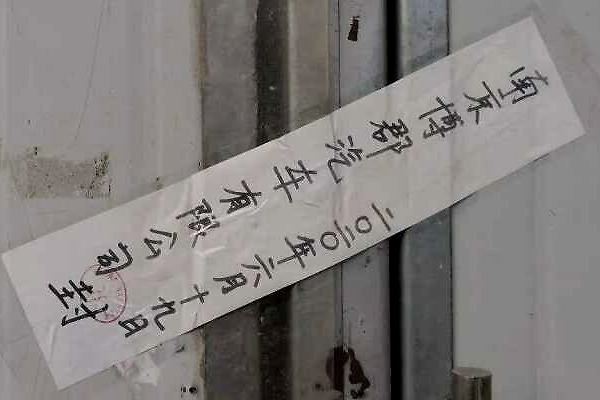 南京博郡汽车有限公司
二〇二〇年六月十九日
封